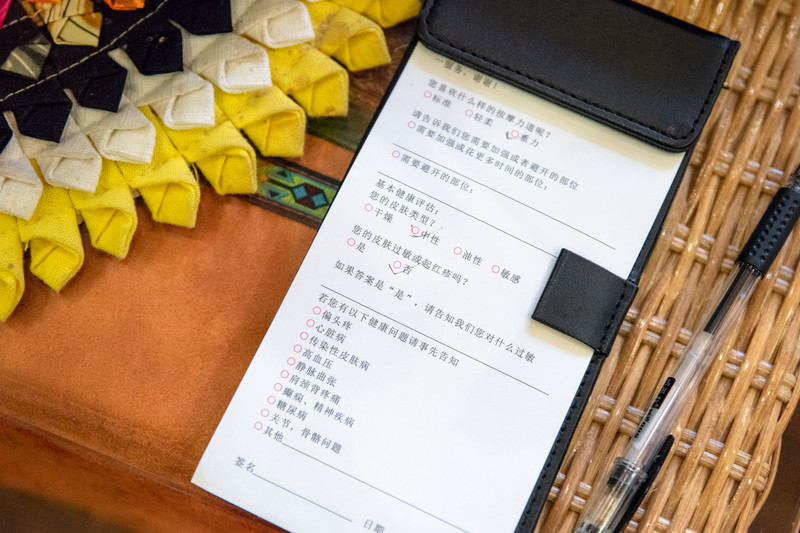 服务，谢谢！
您喜欢什么样的按摩力道呢？
○标准 ○轻柔 ○重力
请告诉我们您需要加强或者避开的部位
○需要加强或花更多时间的部位：
○需要避开的部位：
基本健康评估：
您的皮肤类型？
○干燥 ○中性 ○油性 ○敏感
您的皮肤过敏或起红疹吗？
○是 ○否
如果答案是“是”，请告知我们您对什么过敏
若您有以下健康问题请事先告知
○偏头疼
○心脏病
○传染性皮肤病
○高血压
○静脉曲张
○肩颈背疼痛
○癫痫、精神疾病
○糖尿病
○关节，骨骼问题
○其他
签名 日期